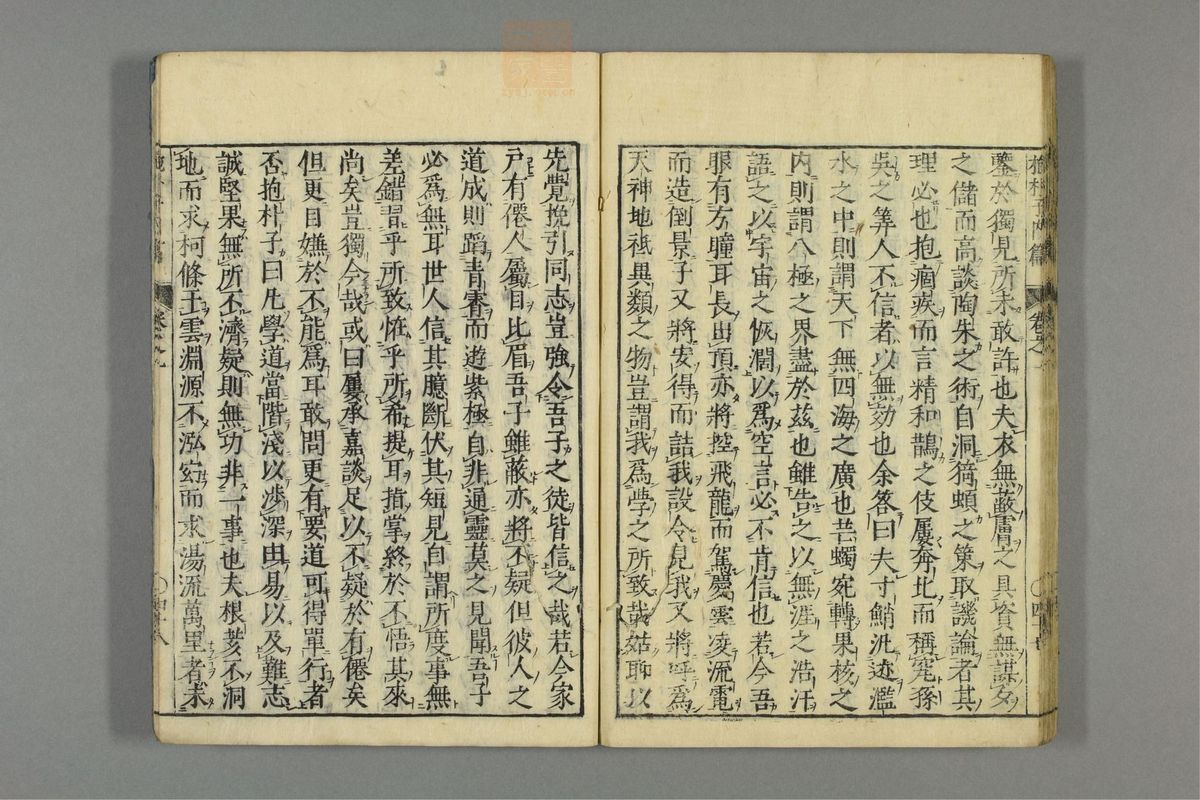 鑒於獨見所未敢許也夫衣無蔽膚之具資無謀夕
之儲而高談陶朱之術自洞猗頓之策取譏論者其
理必也抱痼疾而言精和鵲之伎屢奔北而稱究孫
吳之筭人不信者以無効也余答曰夫寸鮹汎迹濫
水之中則謂天下無四海之廣也芒蠋宛轉果核之
内則謂八極之界盡於茲也雖告之以無涯之浩汗
語之以宇宙之恢濶以爲空言必不肯信也若令吾
眼有方瞳耳長出頂亦將控飛龍而駕慶雲凌流電
而造倒景子又將安得而詰我設令見我又將呼爲
天神地祇異類之物豈謂我爲學之所致哉姑聊以
先覺挽引同志豈強令吾子之徒皆信之哉若令家
戸有僊人屬目比眉吾子雖蔽亦將不疑但彼人之
道成則蹈青霄而遊紫極自非通靈莫之見聞吾子
必爲無耳世人信其臆斷伏其短見自謂所度事無
差錯習乎所致恠乎所希提耳指掌終於不悟其來
尚矣豈獨今哉或曰屢承嘉談足以不疑於有僊矣
但更自嫌於不能爲耳敢問更有要道可得單行者
否抱朴子曰凡學道當階淺以渉深由易以及難志
誠堅果無所不濟疑則無功非一事也夫根荄不洞
地而求柯條干雲淵源不泓窈而求湯流萬里者未